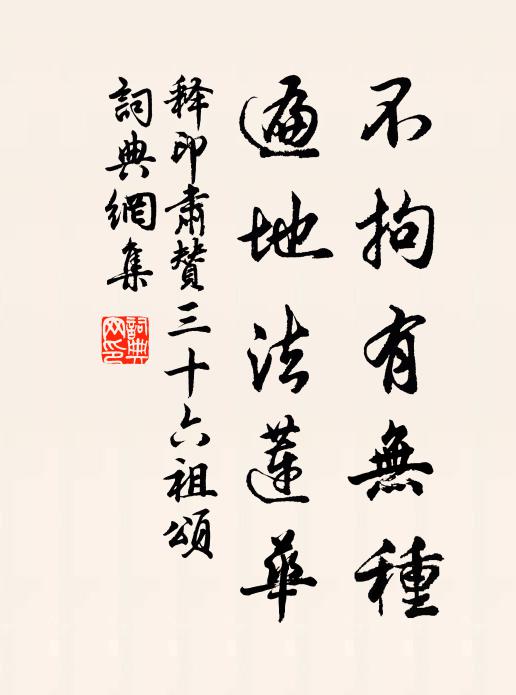 不拘有無種
遍地法蓮華
释印肃贊三十六祖頌
詞典網集
詞典网印